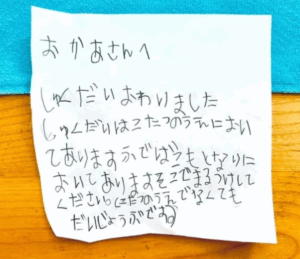 おかあさんへ
しゅくだいおわりました
しゅくだいはこたつのうえにおい
てありますふでばうもとなりに
おいてありますそこでまるつけして
ください。(こたつのうえでなくても
だいじょうぶです)